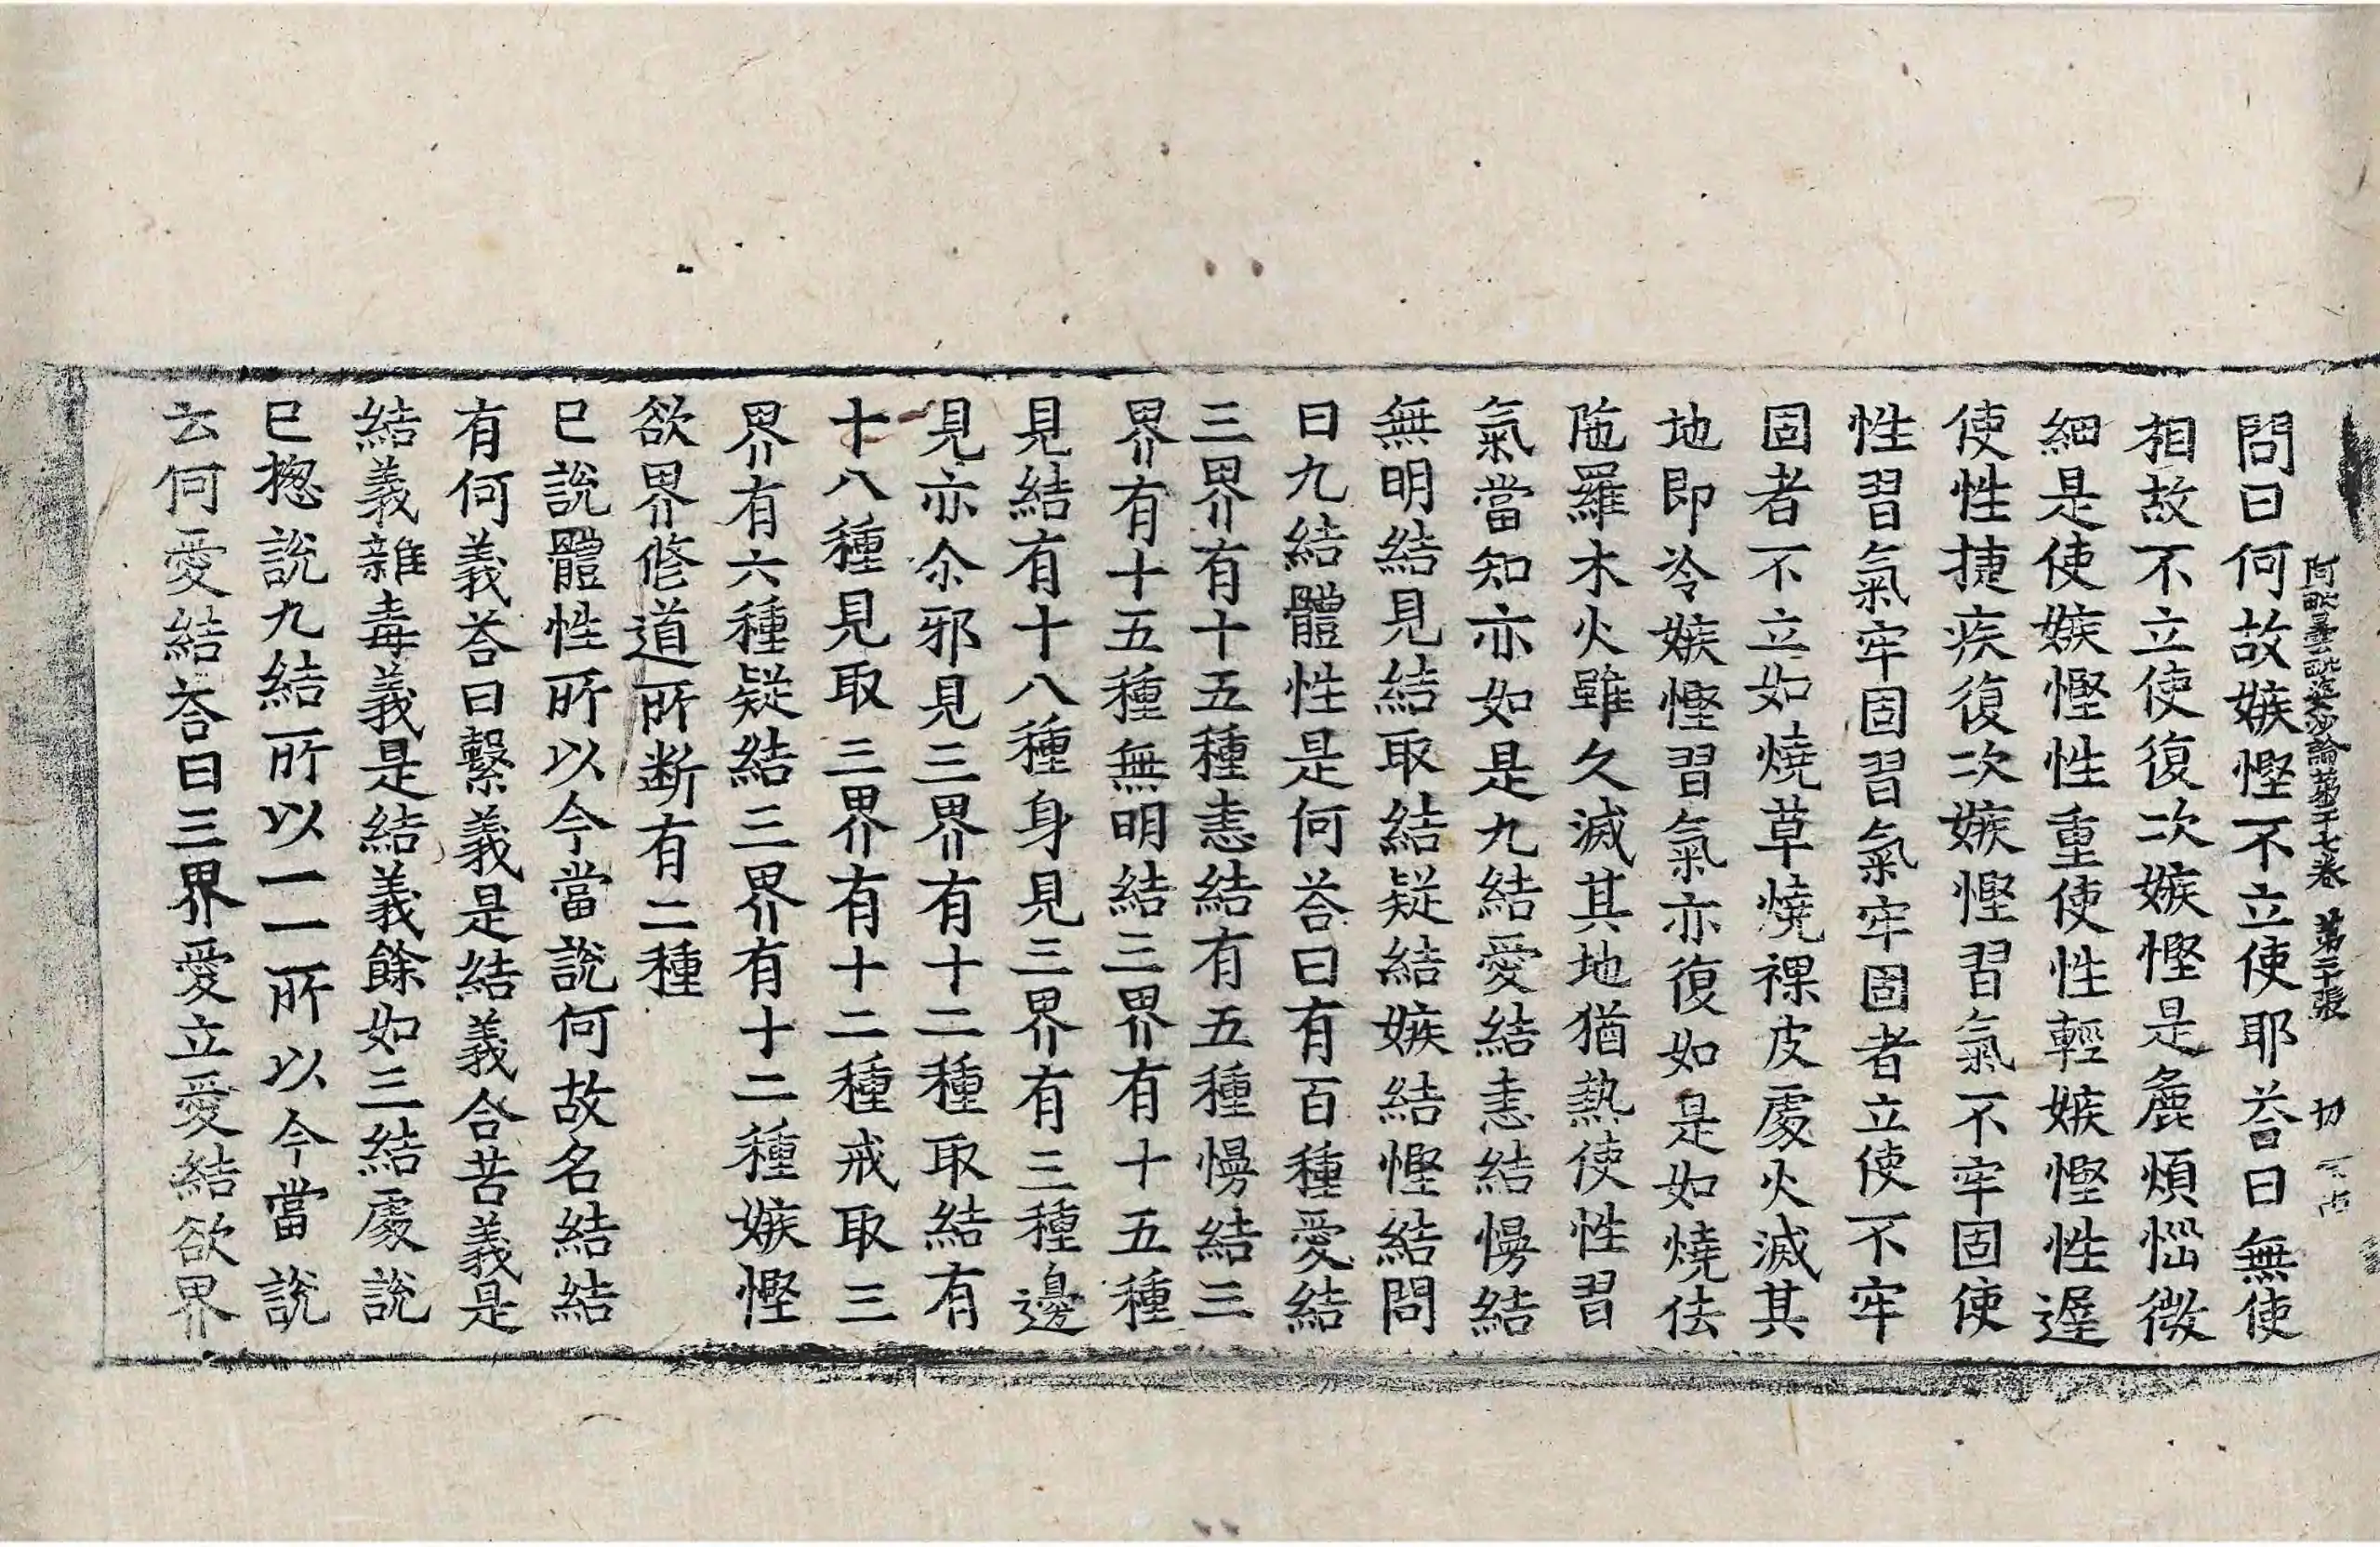 阿毗曇毗婆沙論第二十七卷　第二十張　切
問曰何故嫉慳不立使耶荅曰無使
相故不立使復次嫉慳是麁煩惱微
細是使嫉慳性重使性輕嫉慳性遅
使性捷疾復次嫉慳習氣不牢固使
性習氣牢固習氣牢固者立使不牢
固者不立如燒草燒祼皮處火滅其
地即冷嫉慳習氣亦復如是如燒佉
陁羅木火雖久滅其地猶熱使性習
氣當知亦如是九結愛結恚結慢結
無明結見結取結疑結嫉結慳結問
曰九結體性是何荅曰有百種愛結
三界有十五種恚結有五種慢結三
界有十五種無明結三界有十五種
見結有十八種身見三界有三種邊
見亦尒邪見三界有十二種取結有
十八種見取三界有十二種戒取三
界有六種疑結三界有十二種嫉慳
欲界修道所断有二種
已說體性所以今當說何故名結結
有何義荅曰繫義是結義合苦義是
結義雜毒義是結義餘如三結處說
已揔說九結所以一一所以今當說
云何愛結荅曰三界愛立愛結欲界